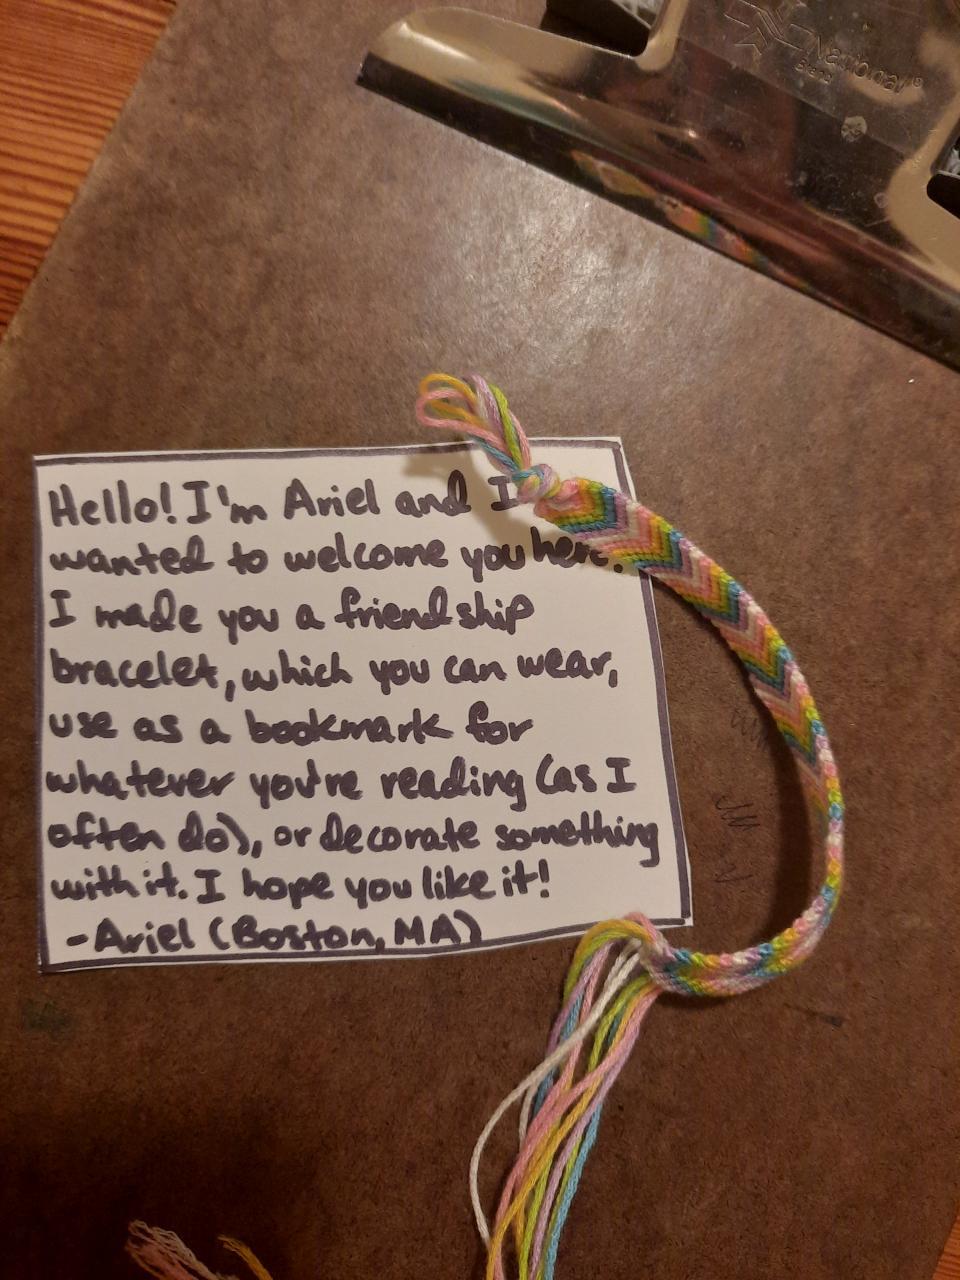 National®
Brand
Hello! I'm Ariel and I
wanted to welcome you here!
I made you a friendship
bracelet, which you can wear,
use as a bookmark for
whatever you're reading (as I
often do), or decorate something
with it. I hope you like it!
-Ariel (Boston, MA)